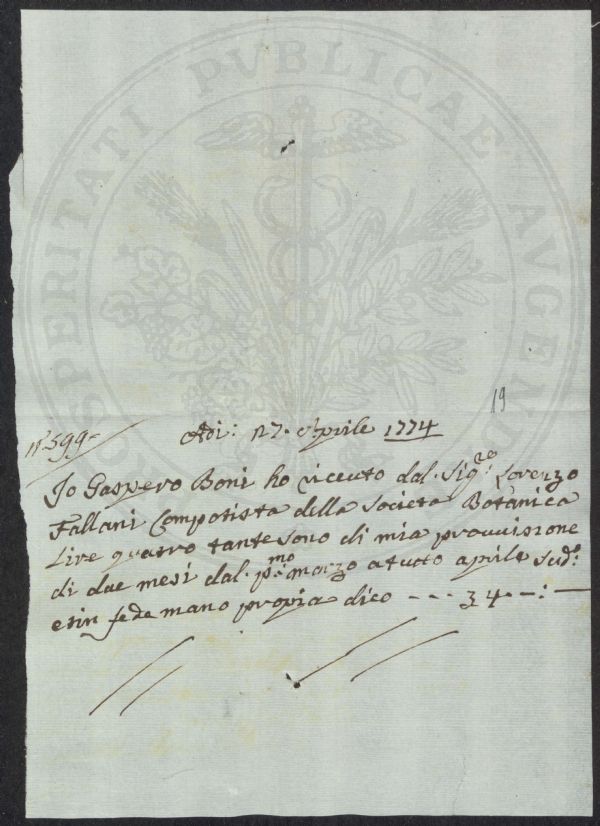 PROSPERITATI PUBLICAE AUGEN
19
n° 599-
Adi: 27. Aprile 1774
Jo Gaspero Boni ho riceuto dal. Sigre Lorenzo
Fallani Computista della Societa Botanica
Lire quatro tante sono di mia provvisione
di due mesi dal. pmo: marzo a tutto aprile sudo:
e in fede mano propia dico --- 34. -:-